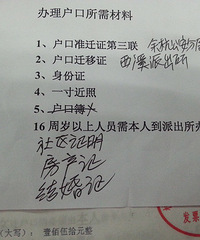 办理户口所需材料
1、户口准迁证第三联 余杭公安分局
2、户口迁移证 西溪派出所
3、身份证
4、一寸近照
5、户口簿
16 周岁以上人员需本人到派出所办
社区证明
房产证
结婚证
(大写): 壹佰伍拾元整
发票